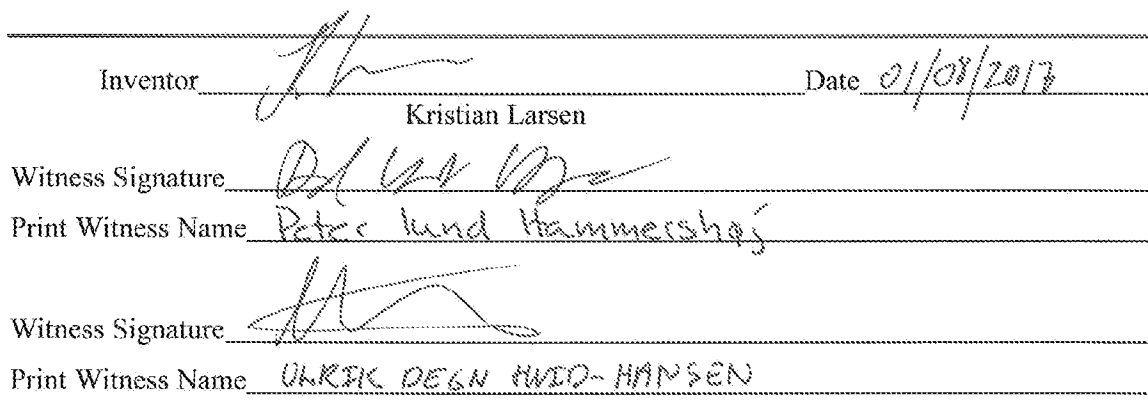 Inventor Date 01/08/2017
Kristian Larsen
Witness Signature
Print Witness Name Peter Lund Hammershøj
Witness Signature
Print Witness Name ULRIK DEGN HVID-HANSEN